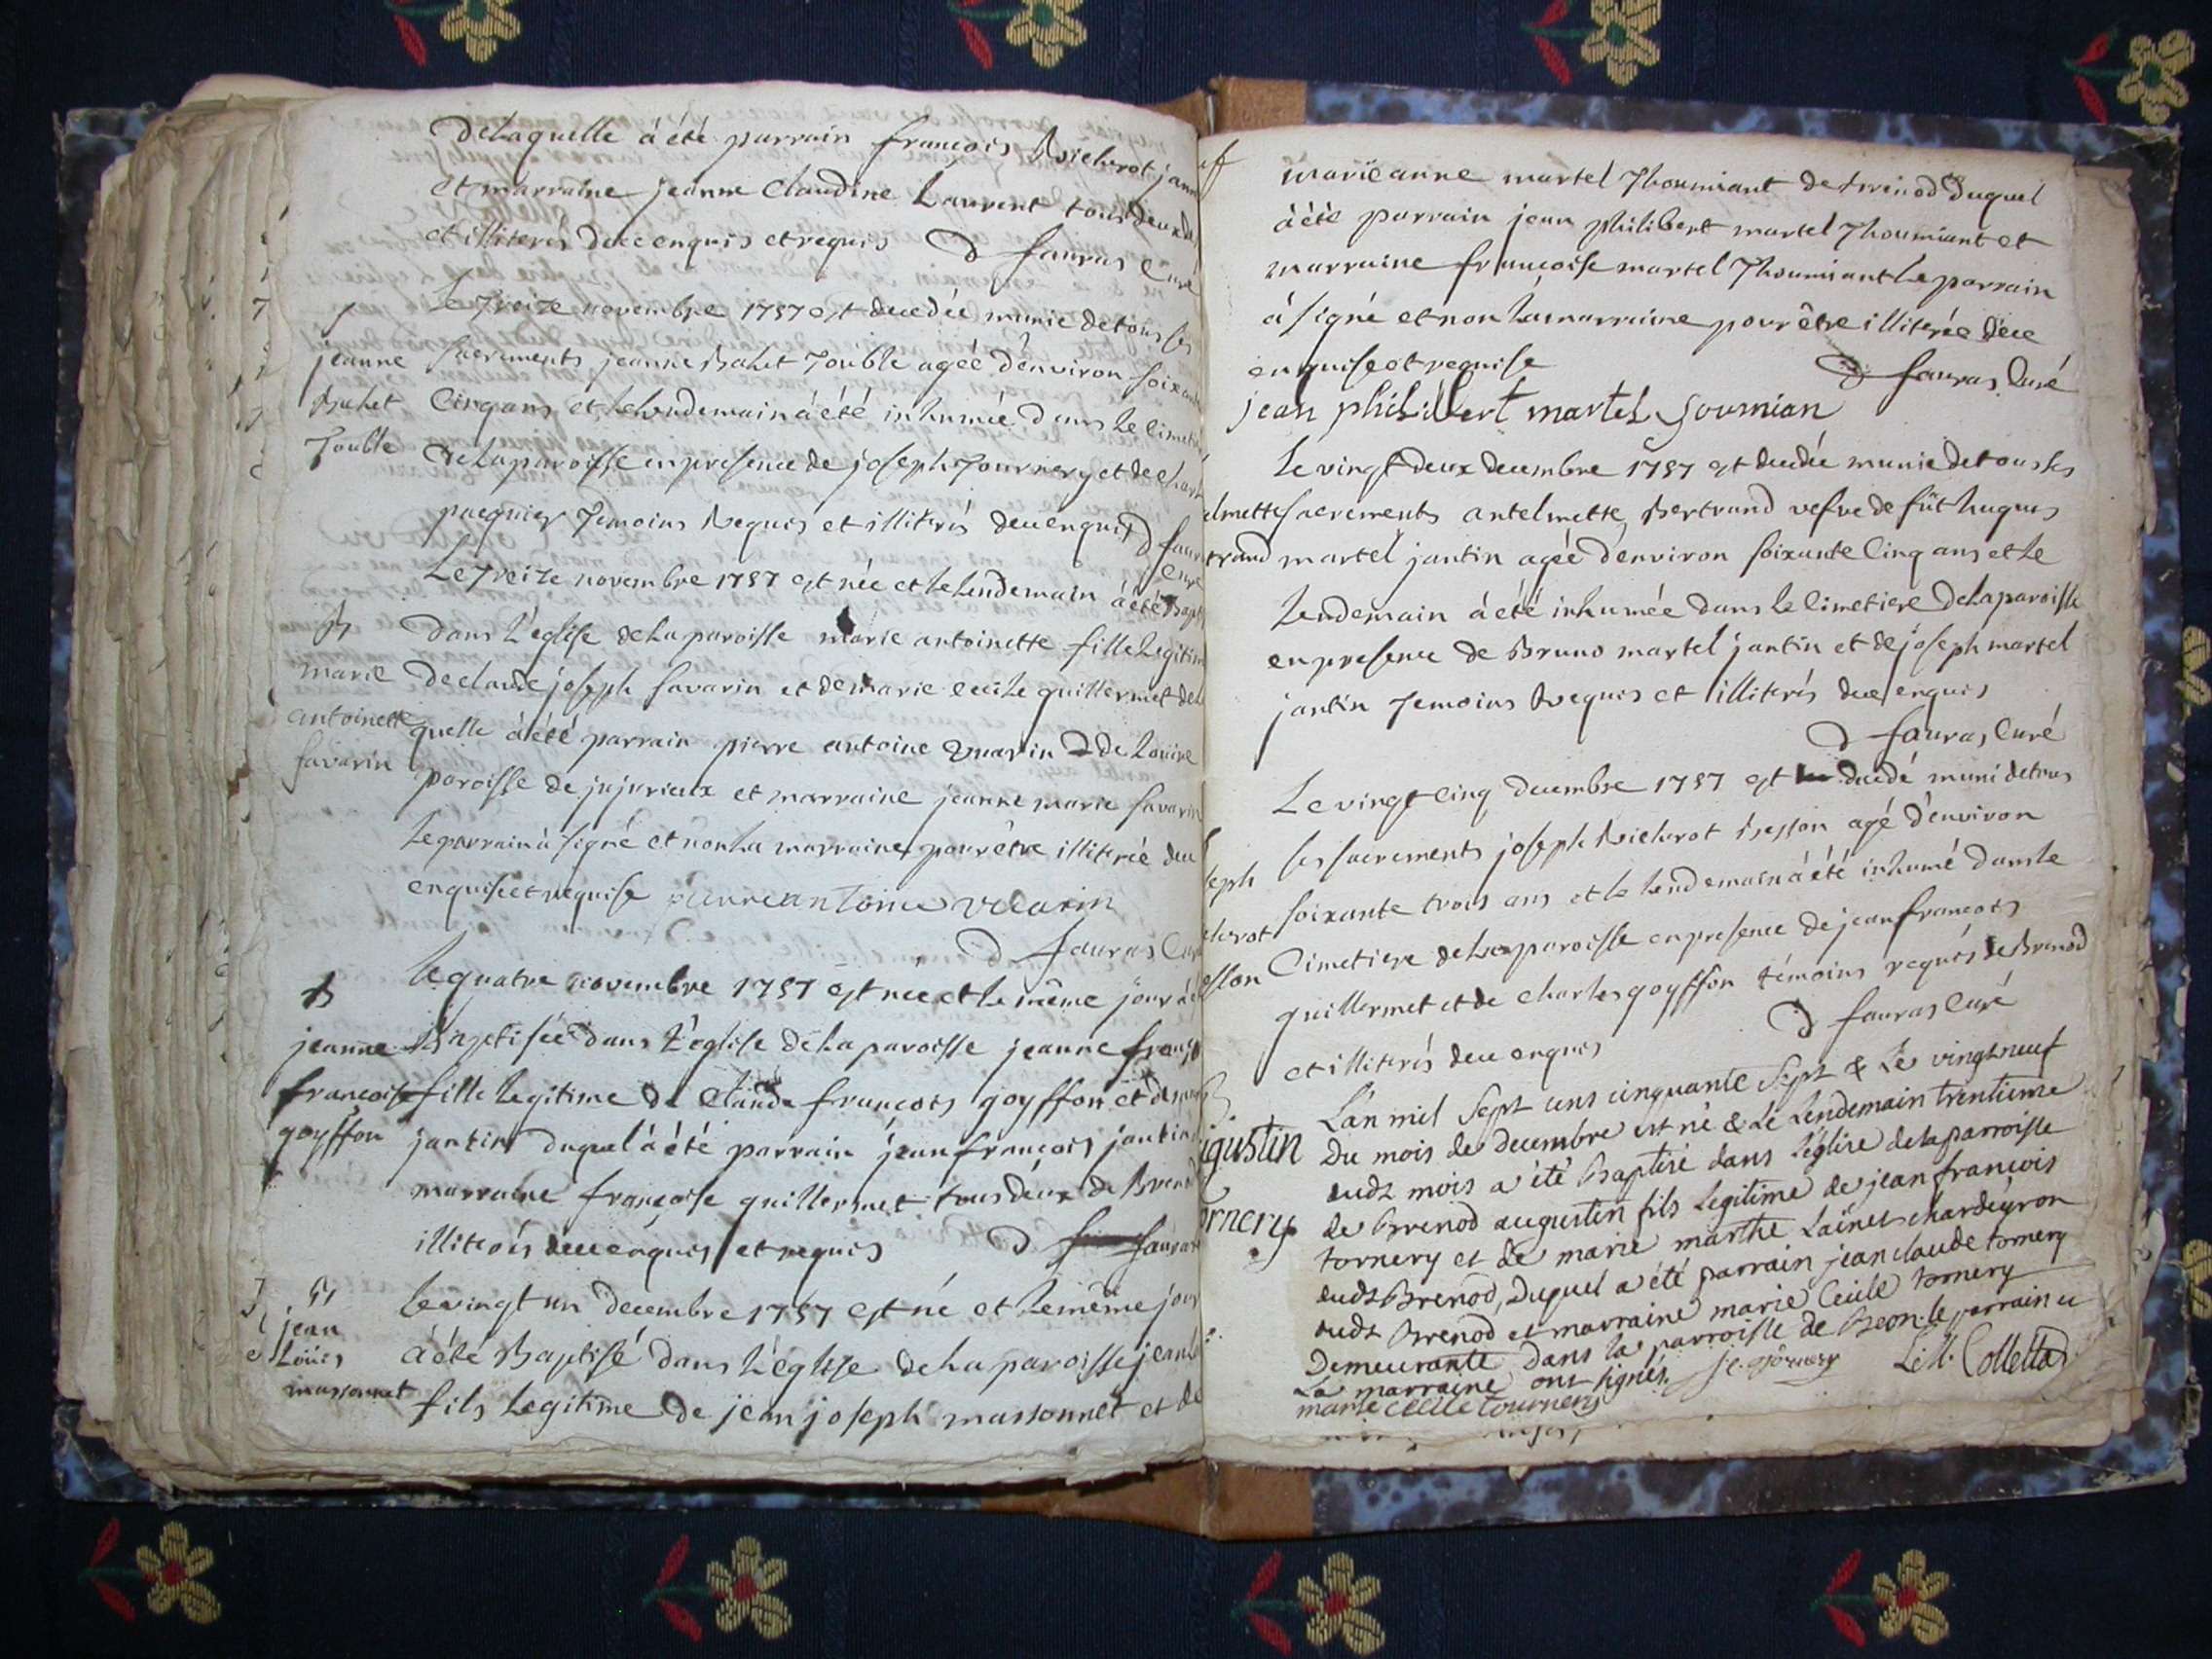 delaquelle à été parrain francois Vielerot jann
et marraine jeanne Claudine Laurent tous deux de
et illiterés de ce enquis et requis D fauras Curé
Le treize novembre 1757 est decedée munie de tous ses
jeanne sacrements jeanne Bahet Touble agée d'environ soixante
Bahet Cinq ans et le lendemain à été inhumée dans le cimeti
Touble dela paroisse en presence de joseph Tournery et de charl
temoins requis et illiterés de ce enquis D faur
Curé
Le treize novembre 1757 est née et le lendemain à été Bapt
B dans l'église dela paroisse marie antoinette fille legitim
marie de claude joseph savarin et de marie cecile guillermet dela
antoinette quelle à été parrain pierre antoine de
savarin paroisse de jujurieux et marraine jeanne marie savarin
le parrain à signé et non la marraine pour être illiterée de ce
enquise et requise pierre antoine
D fauras Curé
B le quatre novembre 1757 est née et le même jour à é
jeanne Baptisée dans l'église dela paroisse jeanne françoi
francoise fille legitime de Claude francois goyffon et de
goyffon jantin duquel à été parrain jean françois jantin
marraine françoise guillermet tous deux de Brenod
illiterés de ce enquis et requis D fauras
B le vingt un decembre 1757 est né et le même jour
jean
Loüis à été Baptisé dans l'église dela paroisse jean l
massonnet fils legitime de jean joseph massonnet et de
marie anne martel Thoumiant de brenod duquel
à été parrain jean philibert martel Thoumiant et
marraine francoise martel Thoumiant le parrain
à signé et non la marraine pour être illiterée de ce
enquise et requise D fauras Curé
jean philibert martel
Le vingt deux decembre 1757 est decedée munie de tous les
elmette sacrements antelmette Bertrand vefve de fût hugues
trand martel jantin agée d'environ soixante Cinq ans et le
lendemain à été inhumée dans le cimetiere dela paroisse
en presence de Bruno martel jantin et de joseph martel
jantin temoins requis et illiterés de ce enquis
D fauras Curé
Le vingt cinq decembre 1757 est decedé muni de tous
seph les sacrements joseph Vielerot Besson agé d'environ
lerot soixante trois ans et le lendemain à été inhumé dans le
esson Cimetiere dela paroisse en presence de jean francois
guillermet et de charles goyffon témoins requis de Brenod
et illiterés de ce enquis D fauras Curé
L'an mil sept cens cinquante sept & Le vingt neuf
igustin du mois de decembre est né & Le Lendemain trentieme
dudt mois a été Baptisé dans l'église de la parroisse
ornery de Brenod augustin fils Legitime de jean francois
tornery et de marie marthe Laïnet chardeyron
dudt Brenod, duquel a été parrain jean claude tornery
dudt Brenod et marraine marie Cecile tornery
Demeurante dans la parroisse de Beon. le parrain et
La marraine ont signés. j c tornery Collettaz
marie cecile tournery